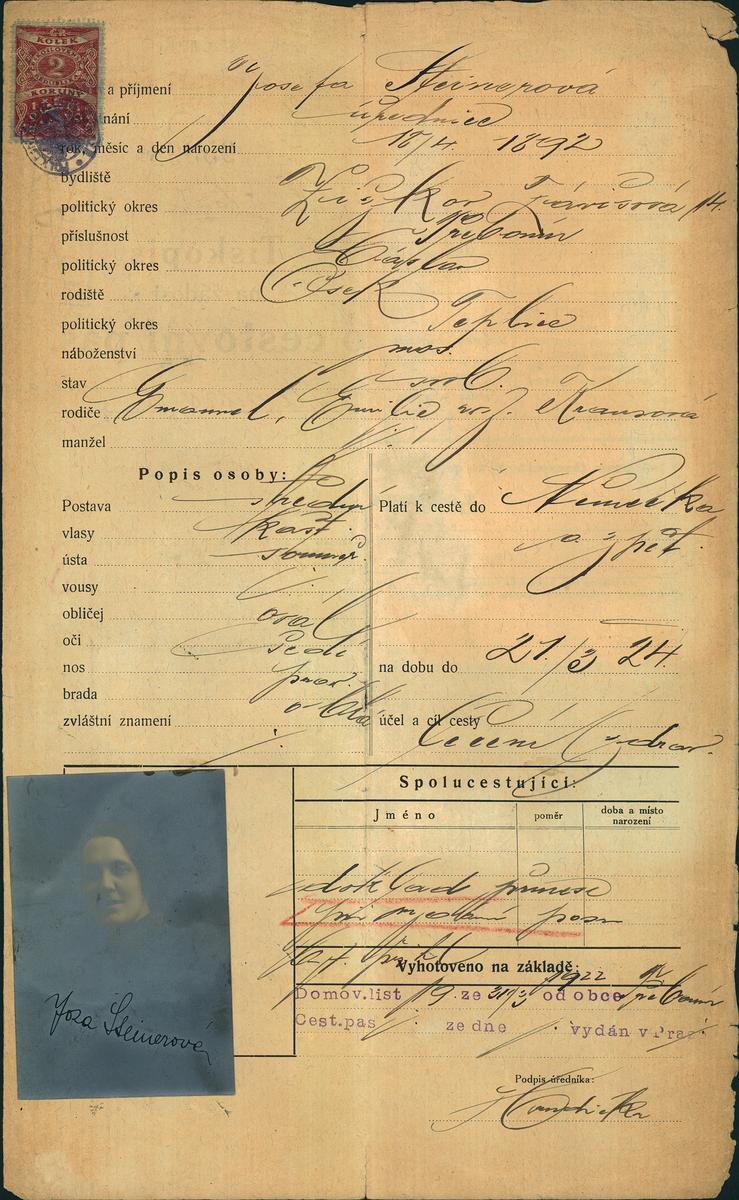 KOLEK
2
KORUNY
a příjmení Josefa Steinerová
úřednice
rok, měsíc a den narození 18/4. 1892
bydliště
politický okres Žižkov 14.
příslušnost Třebonín
politický okres Čáslav
rodiště Osek
politický okres Teplice
náboženství mos.
stav svob.
rodiče Emanuel, Emilie roz. Krausová
manžel
Popis osoby:
Postava střední
vlasy kašt.
ústa souměr.
vousy
obličej ovál
oči šedí
nos prav.
brada oblá
zvláštní znamení
Platí k cestě do Německa
a zpět.
na dobu do 21/3 24.
účel a cíl cesty léčení
Spolucestující:
Jméno
poměr
doba a místo narození
doklad přinese
při vydání pasu
Vyhotoveno na základě:
Domov.list 19. ze 31/3 1922 od obce Třebonín
Cest.pas ze dne vydán v Praze
Podpis úředníka:
Josa Steinerová